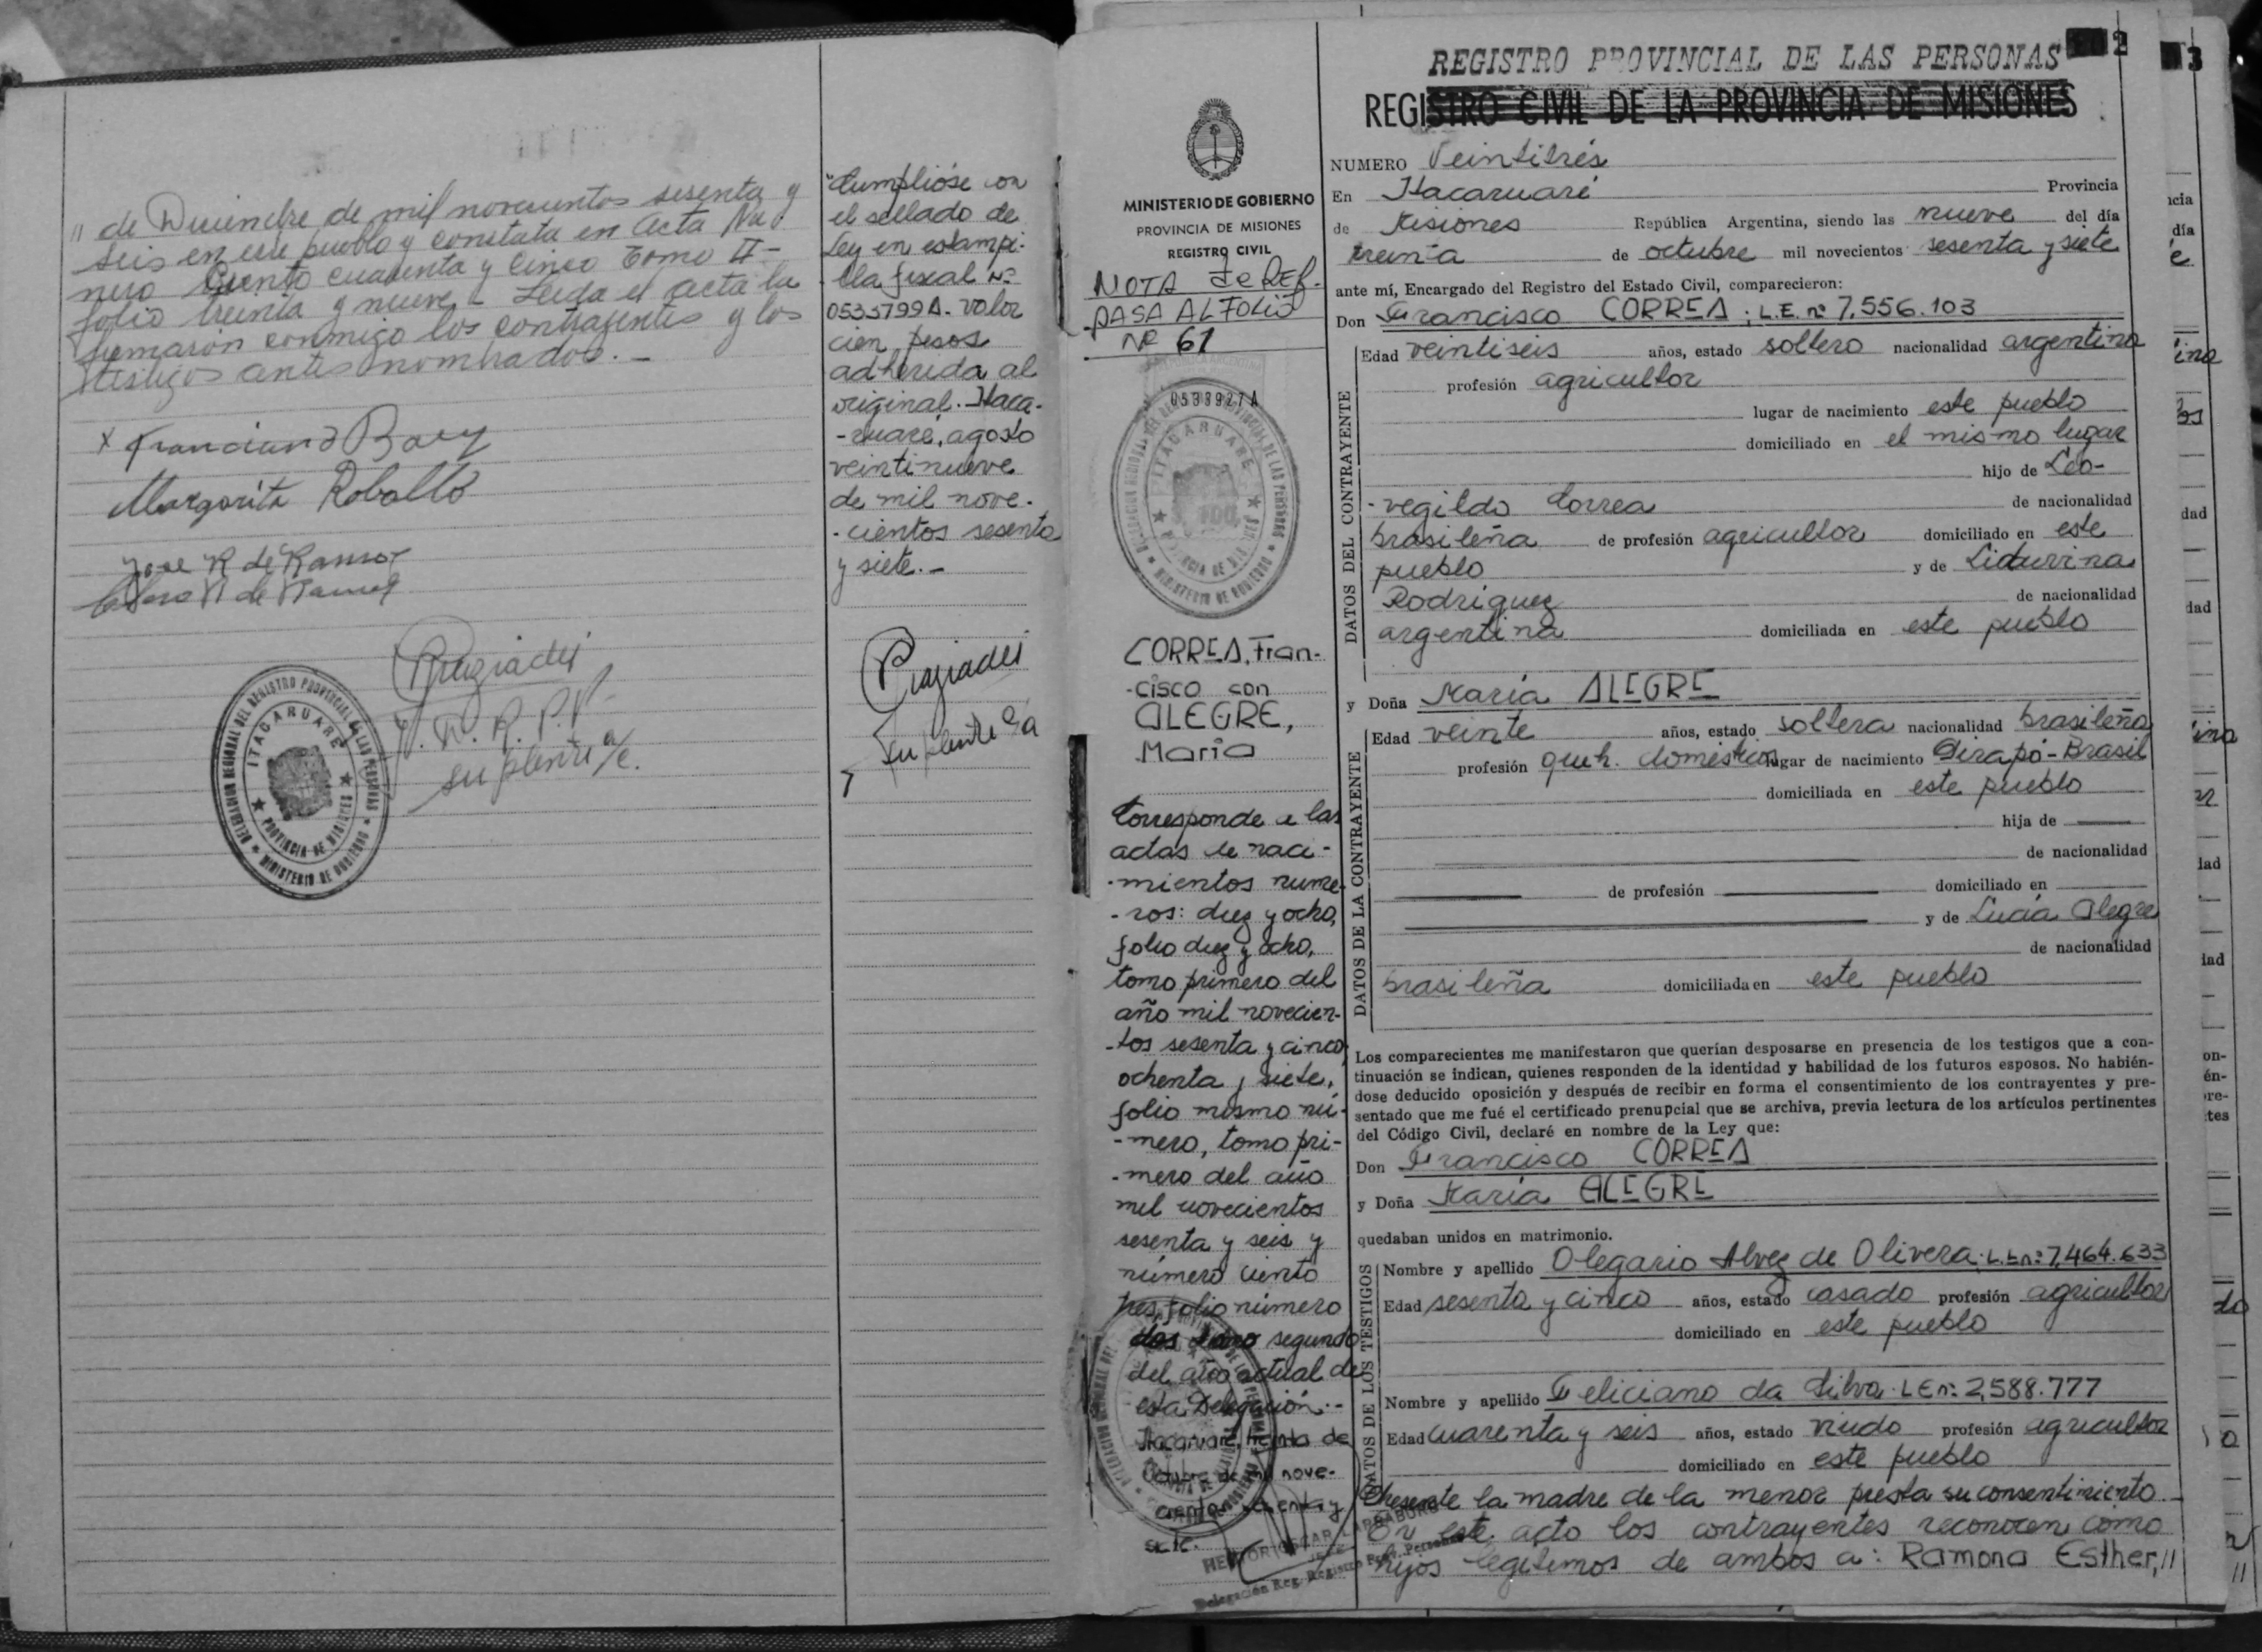 " de Diciembre de mil novecientos sesenta y
seis en este pueblo y constata en Acta Nú-
mero Ciento cuarenta y Cinco Tomo II-
folio treinta y nueve - Leida el acta la
firmaron conmigo los contrayentes y los
testigos antes nombrados. -
x
Margarita Roballo
Jose R de Ramos
de Ramos
suplente a/c.
DELEGACION REGIONAL DEL REGISTRO PROVINCIAL DE LAS PERSONAS
ITACARUARE
PROVINCIA DE MISIONES
MINISTERIO DE GOBIERNO
"Cumplióse con
el sellado de
Ley en estampi-
lla fiscal Nº
0535799A. valor
cien pesos
adherida al
original. Itaca-
-ruaré, agosto
veintinueve
de mil nove-
-cientos sesenta
y siete.-
Suplente a/c
MINISTERIO DE GOBIERNO
PROVINCIA DE MISIONES
REGISTRO CIVIL
NOTA de REF.
PASA AL FOLIO
Nº 61
0533927A
ITACARUARE
100
MINISTERIO DE GOBIERNO
CORREA, Fran-
-cisco con
ALEGRE,
María
Corresponde a las
actas de naci-
-mientos núme-
-ros: diez y ocho,
folio diez y ocho,
tomo primero del
año mil novecien-
-tos sesenta y cinco,
ochenta y siete,
folio mismo nú-
-mero, tomo pri-
-mero del año
mil novecientos
sesenta y seis y
número ciento
tres, folio número
dos tomo segundo
del año actual de
esta Delegación.-
Itacaruaré, treinta de
octubre de mil nove-
cientos sesenta y
siete.
HECTOR OSCAR
Delegación Reg. Registro Prov. Personas
REGISTRO PROVINCIAL DE LAS PERSONAS 2
REGISTRO CIVIL DE LA PROVINCIA DE MISIONES
NUMERO Veintitrés
En Itacaruaré Provincia
de Misiones República Argentina, siendo las nueve del día
treinta de octubre mil novecientos sesenta y siete
ante mí, Encargado del Registro del Estado Civil, comparecieron:
Don Francisco CORREA; L.E. nº 7.556.103
DATOS DEL CONTRAYENTE
Edad veintiseis años, estado soltero nacionalidad argentina
profesión agricultor
lugar de nacimiento este pueblo
domiciliado en el mismo lugar
hijo de Leo-
-vegildo Correa de nacionalidad
brasileña de profesión agricultor domiciliado en este
pueblo y de Lidurvina
Rodriguez de nacionalidad
argentina domiciliada en este pueblo
y Doña María ALEGRE
DATOS DE LA CONTRAYENTE
Edad veinte años, estado soltera nacionalidad brasileña
profesión queh. domésticos lugar de nacimiento Dirapó-Brasil
domiciliada en este pueblo
hija de
de nacionalidad
de profesión domiciliado en
y de Lucía Alegre
de nacionalidad
brasileña domiciliada en este pueblo
Los comparecientes me manifestaron que querían desposarse en presencia de los testigos que a con-
tinuación se indican, quienes responden de la identidad y habilidad de los futuros esposos. No habién-
dose deducido oposición y después de recibir en forma el consentimiento de los contrayentes y pre-
sentado que me fué el certificado prenupcial que se archiva, previa lectura de los artículos pertinentes
del Código Civil, declaré en nombre de la Ley que:
Don Francisco CORREA
y Doña María ALEGRE
quedaban unidos en matrimonio.
DATOS DE LOS TESTIGOS
Nombre y apellido Olegario Alvez de Olivera; L.E nº 7.464.633
Edad sesenta y cinco años, estado casado profesión agricultor
domiciliado en este pueblo
Nombre y apellido Feliciano da Silva. LE nº 2,588.777
Edad cuarenta y seis años, estado viudo profesión agricultor
domiciliado en este pueblo
Presente la madre de la menor presta su consentimiento.-
En este acto los contrayentes reconocen como
hijos legítimos de ambos a: Ramona Esther, //
3